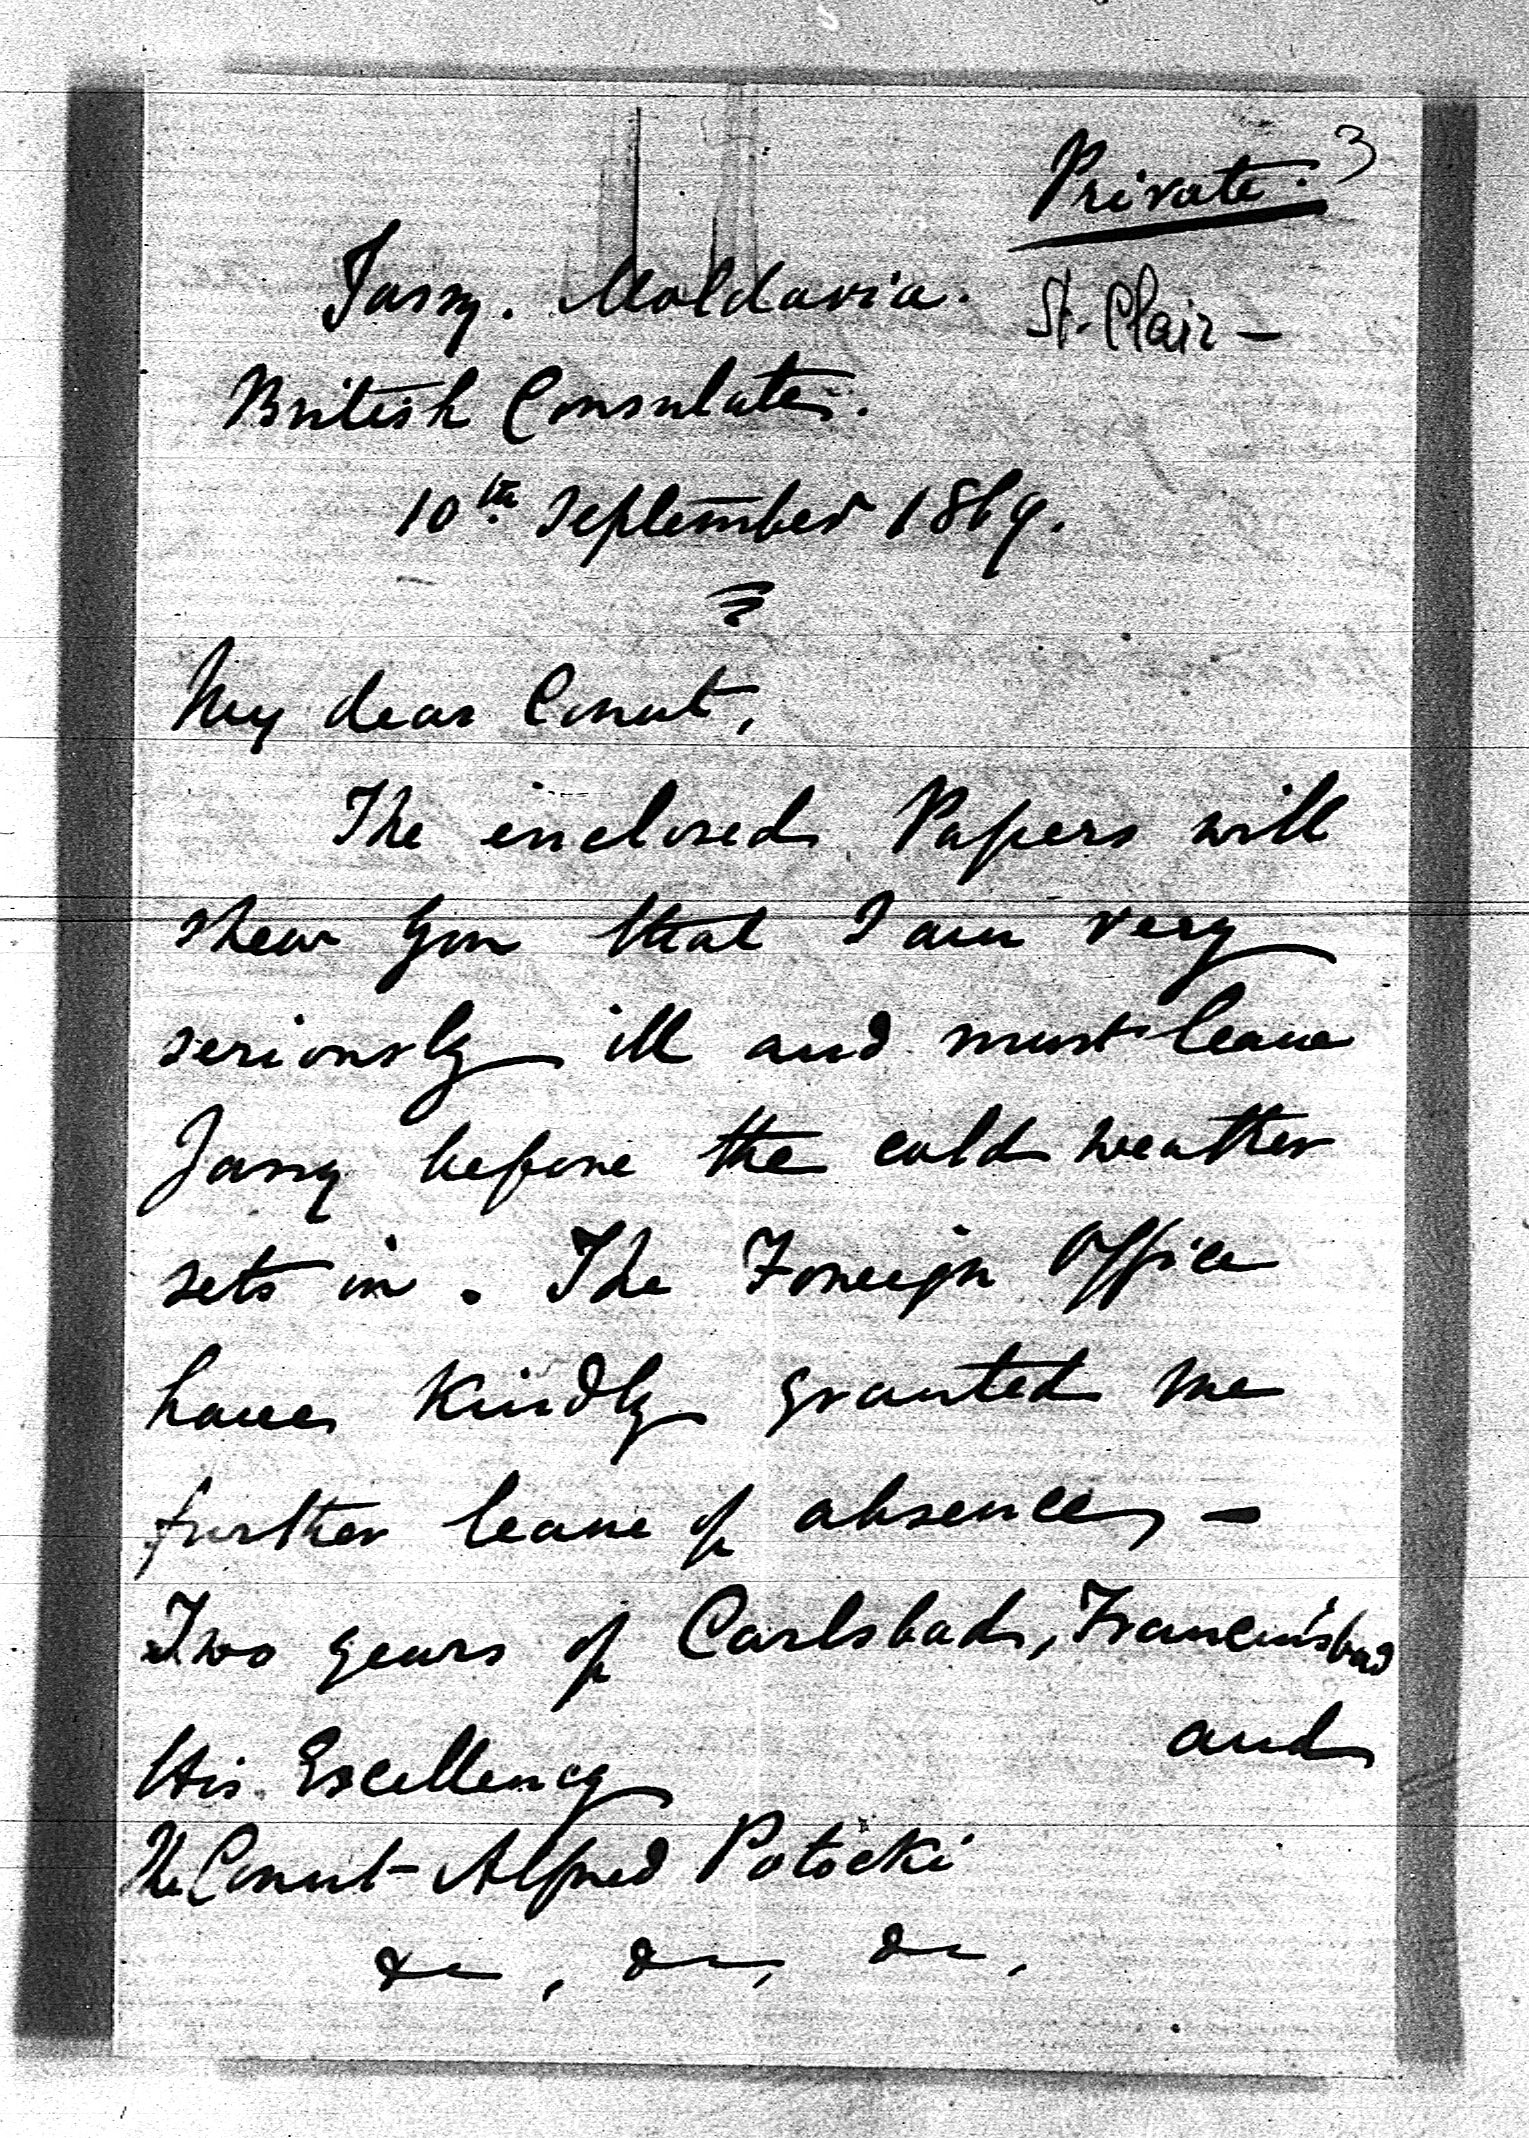 Private. 3
Jassy. Moldavia.
St. Clair –
British Consulate.
10th September 1869.
My dear Count,
The enclosed Papers will
shew you that I am very
seriously ill and must leave
Jassy before the cold weather
sets in. The Foreign Office
have kindly granted me
further leave of absence, –
Two years of Carlsbad, Francensbad
and
His Excellency
The Count Alfred Potocki
&c, &c, &c,